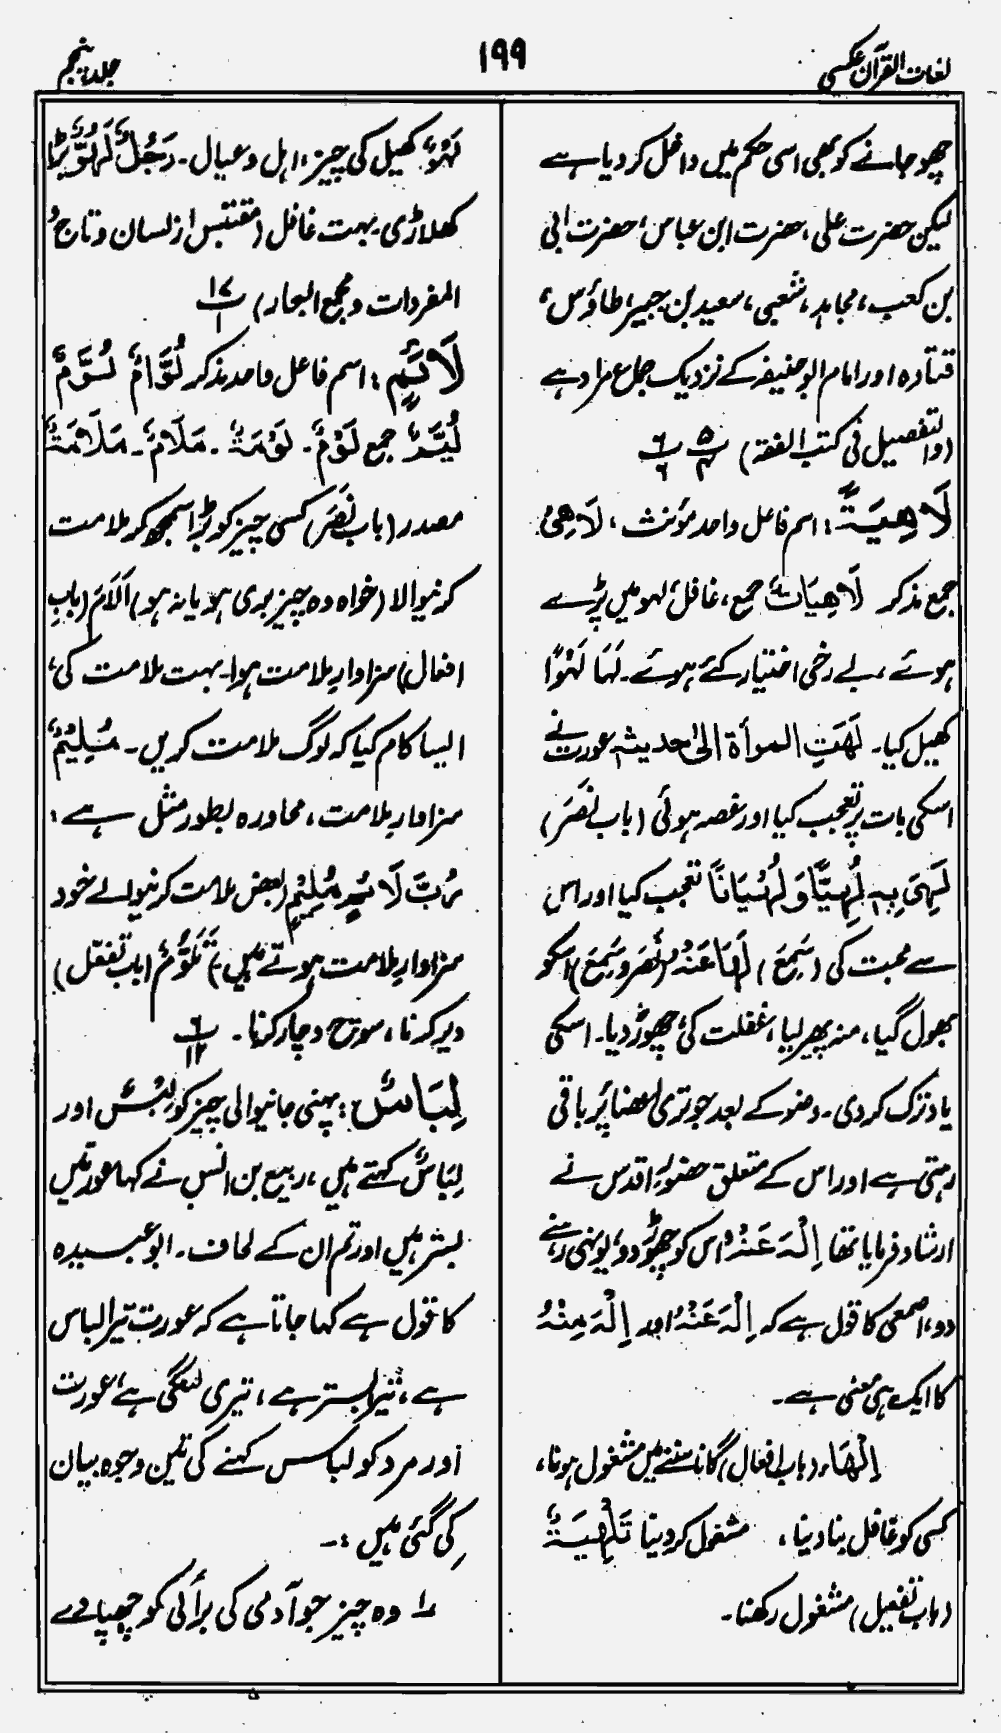 لغات القرآن عکسی
۱۹۹
جلد پنجم
چھو جانے کو بھی اسی حکم میں داخل کر دیا ہے
لیکن حضرت علی، حضرت ابن عباس، حضرت ابی
بن کعب، مجاہد، شعبی، سعید بن جبیر، طاؤس،
قتادہ اور امام ابو حنیفہ کے نزدیک جماع مراد ہے
(والتفصیل فی کتب الفقہ) پ۵ ۴ پ۶ ۶
لَاهِيَةً: اسم فاعل واحد مؤنث، لَاهِیْ
جمع مذکر لَاهِيَاتٌ جمع، غافل، لہو میں پڑے
ہوئے، بے رخی اختیار کئے ہوئے۔ لَهَا لَهْوًا
کھیل کیا۔ لَهَتِ المرأة الیٰ حدیثہٖ عورت نے
اسکی بات پر تعجب کیا اور غصہ ہوئی (باب نَصَرَ)
لَهِيَ بِهٖ لُهِيًّا وَ لُهْيَانًا تعجب کیا اور اس
سے محبت کی (سَمِعَ) لَهَا عَنْهُ (نَصَرَ وَسَمِعَ) اسکو
بھول گیا، منہ پھیر لیا، غفلت کی، چھوڑ دیا۔ اسکی
یاد ترک کر دی۔ وضو کے بعد جو تری اعضا پر باقی
رہتی ہے اور اس کے متعلق حضورِ اقدس نے
ارشاد فرمایا تھا اِلْهَ عَنْهُ اس کو چھوڑ دو، یونہی رہنے
دو، اصمعی کا قول ہے کہ اِلْهَ عَنْهُ اور اِلْهَ مِنْهُ
کا ایک ہی معنی ہے۔
اِلْهَاء (باب افعال) گانا سننے میں مشغول ہونا،
کسی کو غافل بنا دینا، مشغول کر دینا تَلْهِيَةٌ
(باب تفعیل) مشغول رکھنا۔
لَهْوٌ کھیل کی چیز، اہل و عیال۔ رَجُلٌ لَهُوٌّ بڑا
کھلاڑی بہت غافل (مقتبس از لسان و تاج و
المفردات و مجمع البحار) پ۱۷ ۱
لَائِمٍ: اسم فاعل واحد مذکر لُوَّامٌ لُوَّمٌ
لُيَّمٌ جمع لَوْمٌ۔ لَوْمَةٌ۔ مَلَامٌ۔ مَلَامَةٌ
مصدر (باب نَصَرَ) کسی چیز کو بُرا سمجھ کر ملامت
کرنیوالا (خواہ وہ چیز بری ہو یا نہ ہو) اَلَامَ (بابِ
افعال) سزاوارِ ملامت ہوا۔ بہت ملامت کی،
ایسا کام کیا کہ لوگ ملامت کریں۔ مُلِيْمٌ
سزاوارِ ملامت، محاورہ بطور مثل ہے:
رُبَّ لَائِمٍ مُلِيْمٍ (بعض ملامت کرنیوالے خود
سزاوارِ ملامت ہوتے ہیں۔) تَلَوُّمٌ (باب تفعّل)
دیر کرنا، سوچ وچار کرنا۔ پ۶ ۱۲
لِبَاسٌ: پہنی جانیوالی چیز کو لِبْسٌ اور
لِبَاسٌ کہتے ہیں، ربیع بن انس نے کہا عورتیں
بستر ہیں اور تم ان کے لحاف۔ ابو عبیدہ
کا قول ہے کہا جاتا ہے کہ عورت تیرا لباس
ہے، تیرا بستر ہے، تیری لنگی ہے، عورت
اور مرد کو لباس کہنے کی تین وجوہ بیان
کی گئی ہیں:۔
۱؎ وہ چیز جو آدمی کی برائی کو چھپا دے